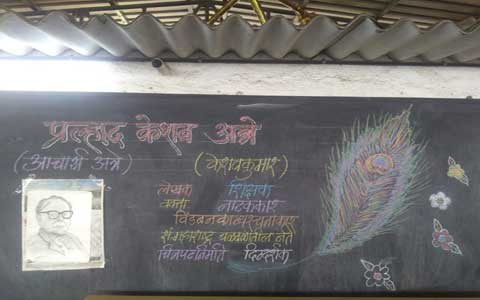 प्रल्हाद केशव अत्रे
(आचार्य अत्रे) (केशवकुमार)
लेखक शिक्षक
वक्ता नाटककार
विडंबनकाव्यरचनाकार
संयुक्तमहाराष्ट्र चळवळीतील नेते
चित्रपटनिर्माते दिग्दर्शक